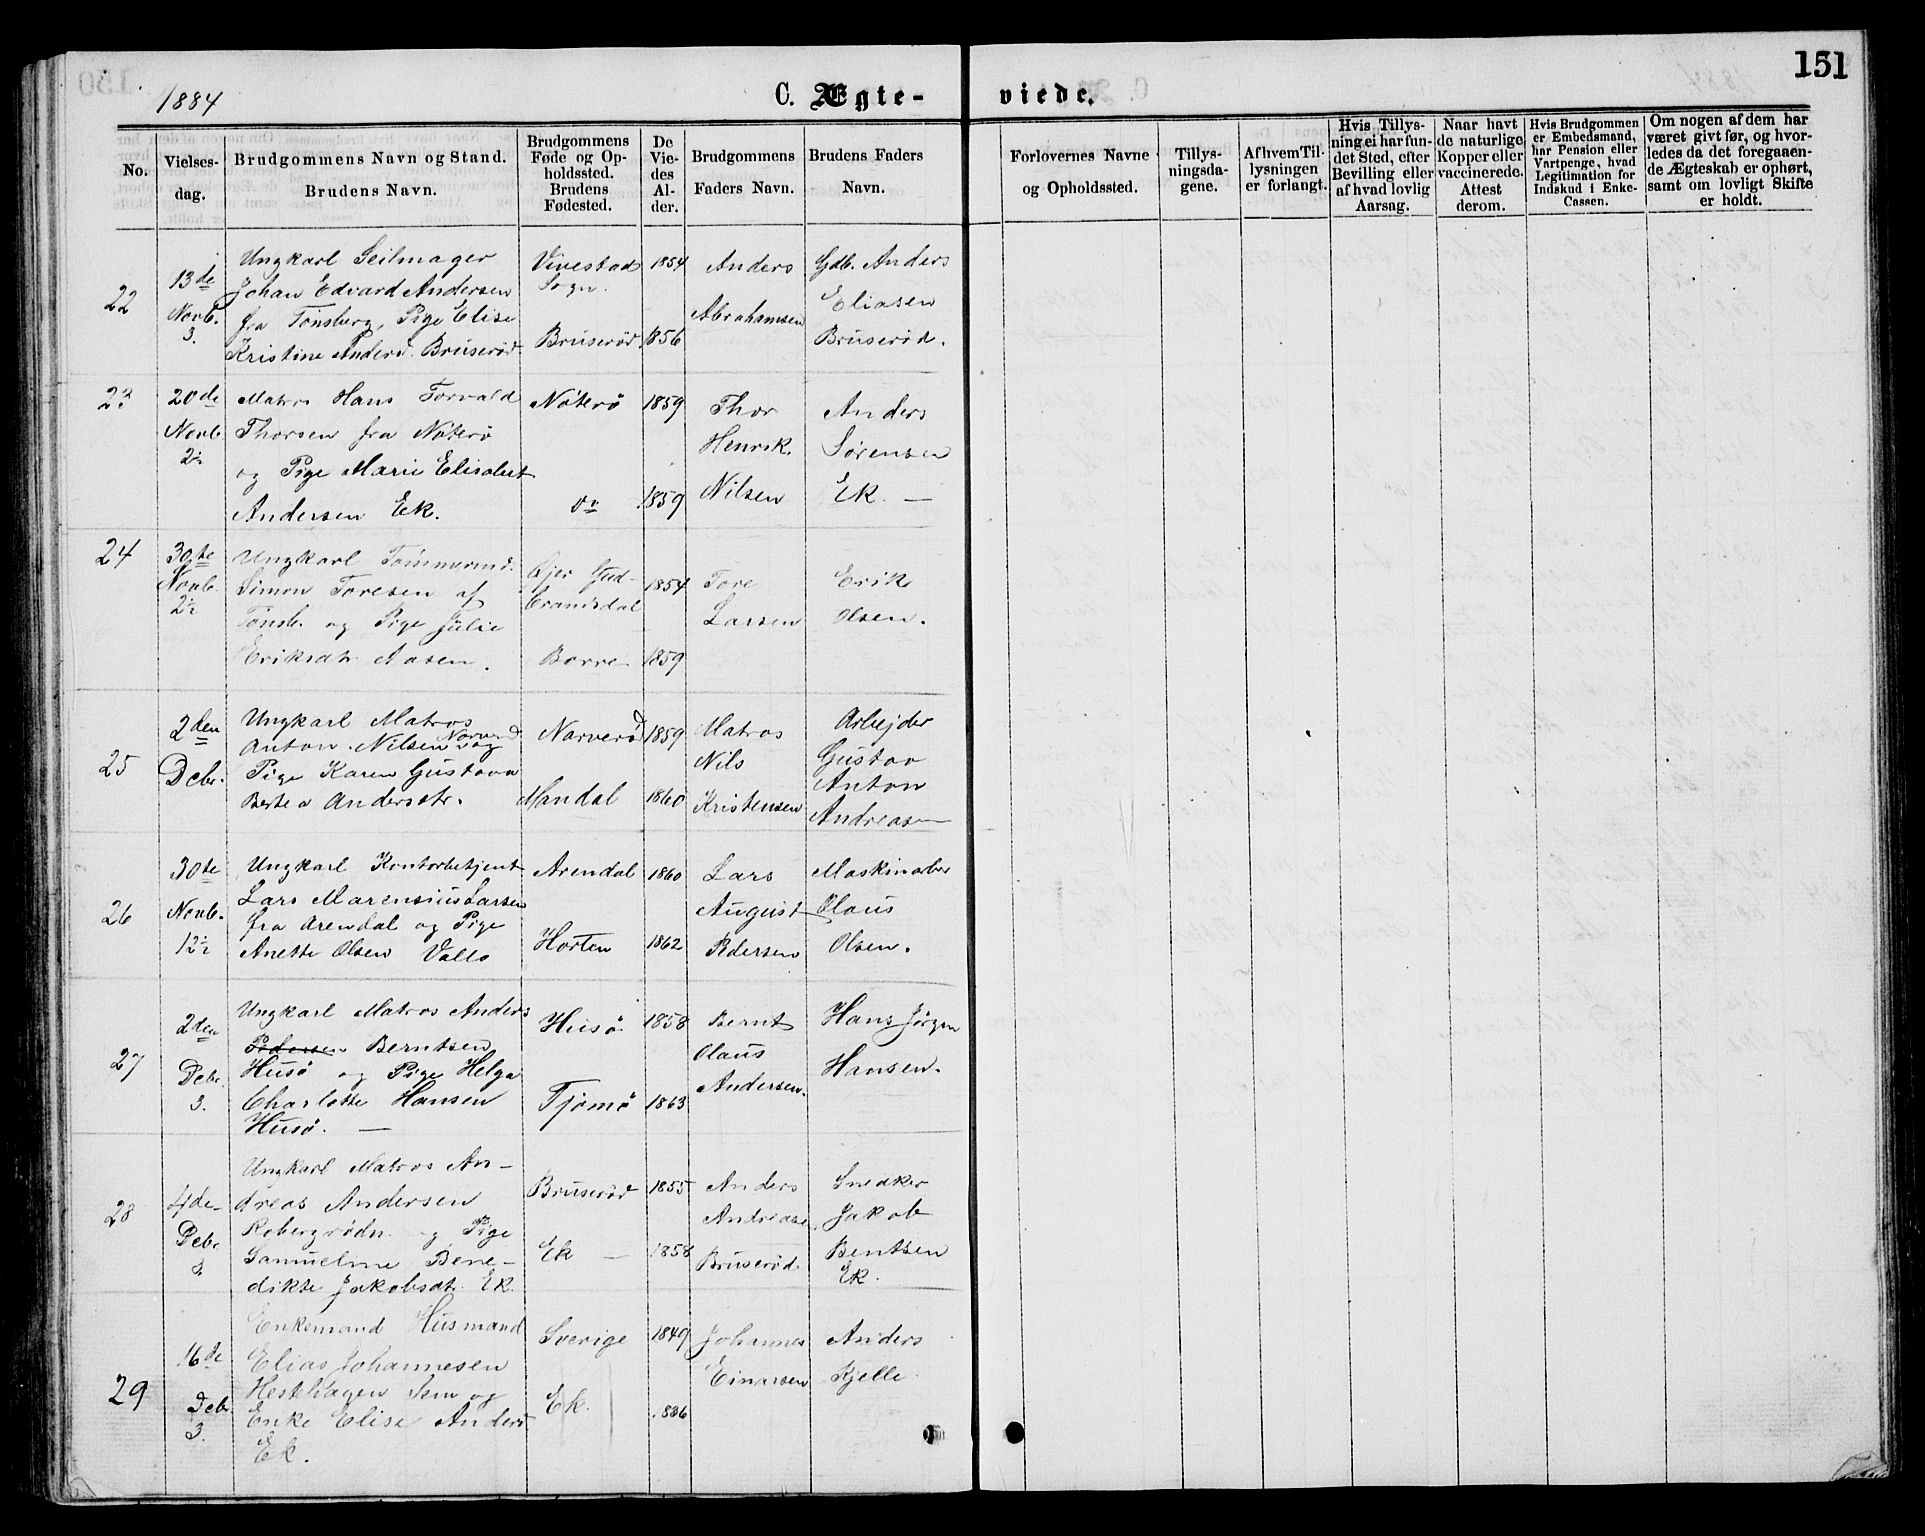 151
1884
C. Ægte- viede.
No.
Vielses-
dag.
Brudgommens Navn og Stand.
Brudens Navn.
Brudgommens
Føde og Op-
holdssted.
Brudens
Fødested.
De
Vie-
des
Al-
der.
Brudgommens
Faders Navn.
Brudens Faders
Navn.
Forlovernes Navne
og Opholdssted.
Tillys-
ningsda-
gene.
Af hvem Til-
lysningen
er forlangt.
Hvis Tillys-
ning ei har fun-
det Sted, efter
Bevilling eller
af hvad lovlig
Aarsag.
Naar havt
de naturlige
Kopper eller
vaccinerede.
Attest
derom.
Hvis Brudgommen
er Embedsmand,
har Pension eller
Vartpenge, hvad
Legitimation for
Indskud i Enke-
Cassen.
Om nogen af dem har
været givt før, og hvor-
ledes da det foregaaen-
de Ægteskab er ophørt,
samt om lovligt Skifte
er holdt.
22
13de
Novb.
3.
Ungkarl Seilmager
Johan Edvard Andersen
fra Tønsberg, Pige Elise
Kristine Andersd. Bruserød
Vivestad
Sogn.
Bruserød
1854
1856
Anders
Abrahamsen
Gdb. Anders
Eliasen
Bruserød.
23
20de
Novb.
2½
Matros Hans Torvald
Thorsen fra Nøterø
og Pige Marie Elisabet
Andersen Ek.
Nøterø
do
1859
1859
Thor
Henrik
Nilsen
Anders
Sørensen
Ek. —
24
30te
Novb.
2½
Ungkarl Tømmermd.
Simon Toresen af
Tønsb. og Pige Julie
Eriksdtr. Aasen.
Øjer Gud-
brandsdal
Borre
1854
1859
Tore
Larsen
Erik
Olsen.
25
2den
Debr.
Ungkarl Matros
Anton Nilsen Narverød og
Pige Karen Gustava
Bertea Andersdtr.
Narverød
Mandal
1859
1860
Matros
Nils
Kristensen
Arbejder
Gustav
Anton
Andreasen
26
30te
Novb.
12½
Ungkarl Kontorbetjent
Lars Marensius Larsen
fra Arendal og Pige
Anette Olsen Vallø
Arendal
Horten
1860
1862
Lars
August
Pedersen
Maskinarber
Olaus
Olsen.
27
2den
Debr.
3.
Ungkarl Matros Anders
Pedersen Berntsen
Husø og Pige Helga
Charlotte Hansen
Husø. —
Husø
Tjømø
1858
1863
Bernt
Olaus
Andersen.
Hans Jørgen
Hansen.
28
4de
Debr.
Ungkarl Matros An-
dreas Andersen
Robergrødn. og Pige
Samueline Bene-
dikte Jakobsdtr. Ek.
Bruserød
Ek —
1855
1858
Anders
Andreasen
Bruserød
Snedker
Jakob
Bentsen
Ek.
29
16de
Debr.
3.
Enkemand Husmand
Elias Johannesen
Hesthagen Sem og
Enke Elise Andersd.
Ek.
Sverige
Ek.
1849
1836
Johannes
Einarsen
Anders
Kjelle